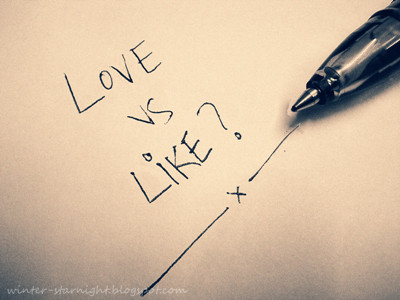 LOVE
VS
LiKE?
winter-starnight.blogspot.com